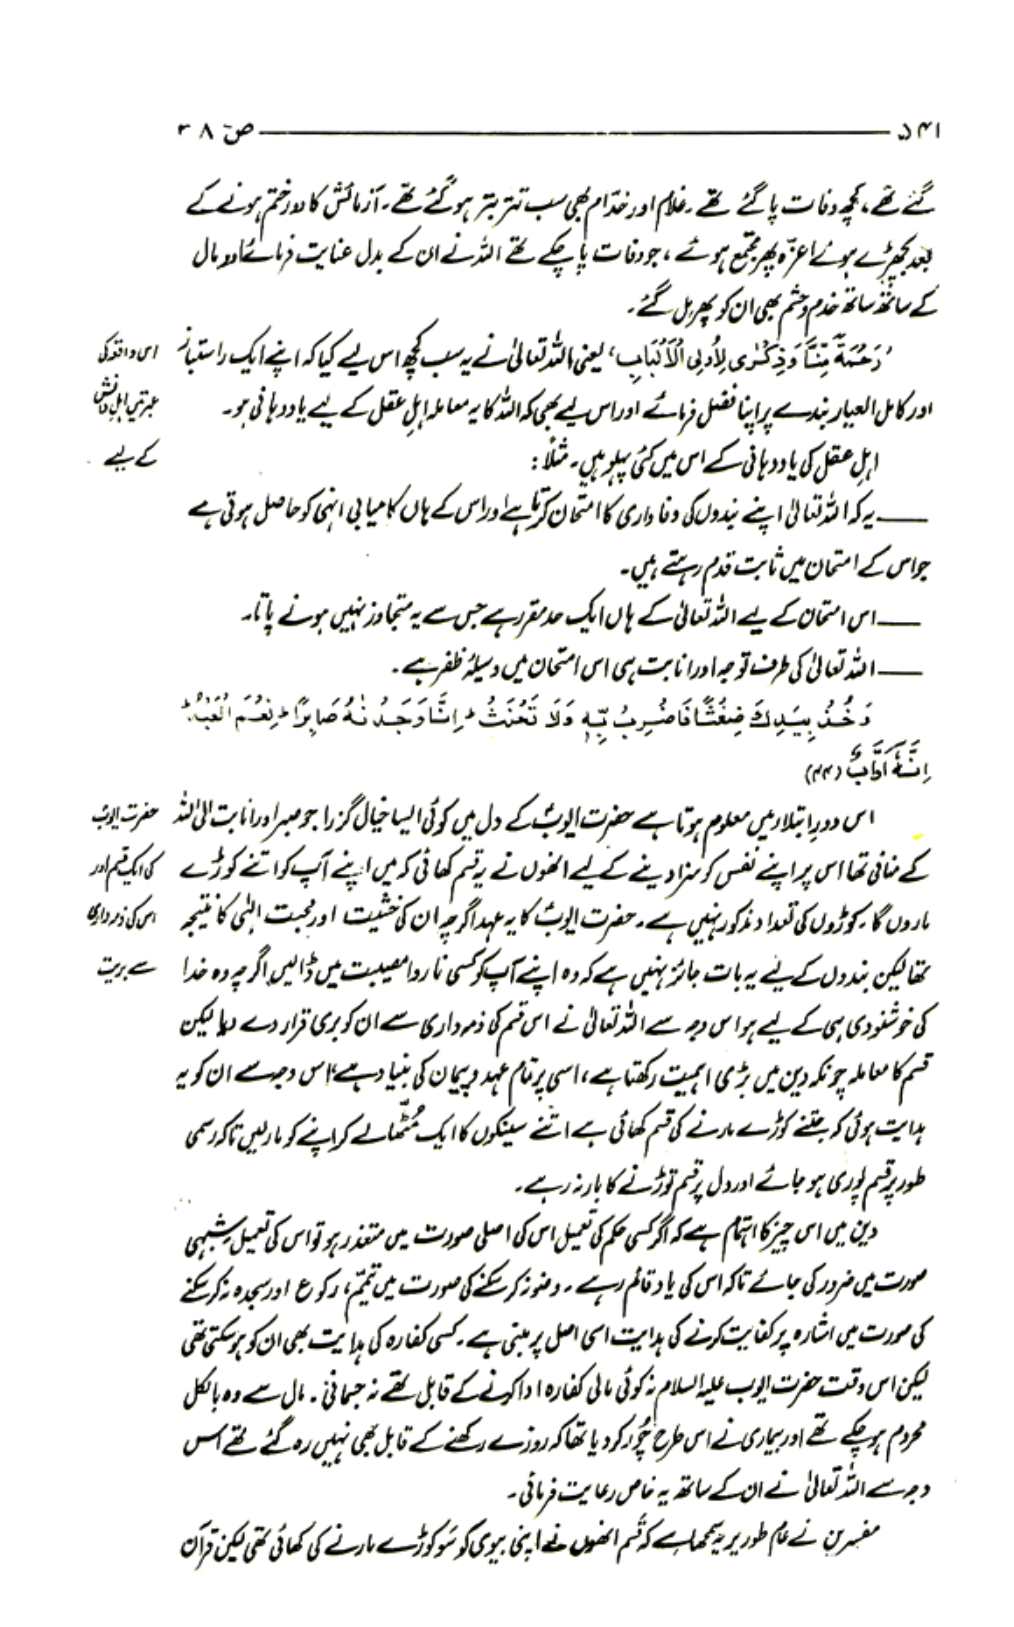 ۵۴۱ ——— صٓ ۳۸
گئے تھے، کچھ وفات پا گئے تھے۔ غلام اور خدّام بھی سب تتر بتر ہو گئے تھے۔ آزمائش کا دور ختم ہونے کے
بعد بچھڑے ہوئے اعزّہ پھر مجتمع ہوئے، جو وفات پا چکے تھے اللہ نے ان کے بدل عنایت فرمائے اور مال
کے ساتھ ساتھ خدم و حشم بھی ان کو پھر مل گئے۔
’رَحْمَةً مِّنَّا وَذِكْرٰى لِأُولِى الْاَلْبَابِ‘، یعنی اللہ تعالیٰ نے یہ سب کچھ اس لیے کیا کہ اپنے ایک راستباز
اس واقعہ کی
اور کامل العیار بندے پر اپنا فضل فرمائے اور اس لیے بھی کہ اللہ کا یہ معاملہ اہلِ عقل کے لیے یاددہانی ہو۔
عبرتیں اہلِ دانش
اہلِ عقل کی یاددہانی کے اس میں کئی پہلو ہیں۔ مثلاً:
کے لیے
—— یہ کہ اللہ تعالیٰ اپنے بندوں کی وفاداری کا امتحان کرتا ہے اور اس کے ہاں کامیابی انہی کو حاصل ہوتی ہے
جو اس کے امتحان میں ثابت قدم رہتے ہیں۔
—— اس امتحان کے لیے اللہ تعالیٰ کے ہاں ایک حد مقرر ہے جس سے یہ متجاوز نہیں ہونے پاتا۔
—— اللہ تعالیٰ کی طرف توجہ اور انابت ہی اس امتحان میں وسیلۂ ظفر ہے۔
وَخُذْ بِيَدِكَ ضِغْثًا فَاضْرِبْ بِّهٖ وَلَا تَحْنَثْ ؕ اِنَّا وَجَدْنٰهُ صَابِرًا ؕ نِعْمَ الْعَبْدُ ؕ
اِنَّهٗٓ اَوَّابٌ (۴۴)
اس دورِ ابتلاء میں معلوم ہوتا ہے حضرت ایوبؑ کے دل میں کوئی ایسا خیال گزرا جو صبر اور انابت الی اللہ
حضرت ایوبؑ
کے منافی تھا اس پر اپنے نفس کو سزا دینے کے لیے انھوں نے یہ قسم کھائی کہ میں اپنے آپ کو اتنے کوڑے
کی ایک قسم اور
ماروں گا۔ کوڑوں کی تعداد مذکور نہیں ہے۔ حضرت ایوبؑ کا یہ عہد اگرچہ ان کی خشیت اور محبت الٰہی کا نتیجہ
اس کی ذمہ داری
تھا لیکن بندوں کے لیے یہ بات جائز نہیں ہے کہ وہ اپنے آپ کو کسی ناروا مصیبت میں ڈالیں اگرچہ وہ خدا
سے بریت
کی خوشنودی ہی کے لیے ہو اس وجہ سے اللہ تعالیٰ نے اس قسم کی ذمہ داری سے ان کو بری قرار دے دیا لیکن
قسم کا معاملہ چونکہ دین میں بڑی اہمیت رکھتا ہے، اسی پر تمام عہد و پیمان کی بنیاد ہے، اس وجہ سے ان کو یہ
ہدایت ہوئی کہ جتنے کوڑے مارنے کی قسم کھائی ہے اتنے سینکوں کا ایک مُٹھا لے کر اپنے کو مار لیں تاکہ رسمی
طور پر قسم پوری ہو جائے اور دل پر قسم توڑنے کا بار نہ رہے۔
دین میں اس چیز کا اہتمام ہے کہ اگر کسی حکم کی تعمیل اس کی اصلی صورت میں متعذر ہو تو اس کی تعمیل شبہی
صورت میں ضرور کی جائے تاکہ اس کی یاد قائم رہے۔ وضو نہ کر سکنے کی صورت میں تیمّم، رکوع اور سجدہ نہ کر سکنے
کی صورت میں اشارہ پر کفایت کرنے کی ہدایت اسی اصل پر مبنی ہے۔ کسی کفارہ کی ہدایت بھی ان کو ہو سکتی تھی
لیکن اس وقت حضرت ایوب علیہ السلام نہ کوئی مالی کفارہ ادا کرنے کے قابل تھے نہ جسمانی۔ مال سے وہ بالکل
محروم ہو چکے تھے اور بیماری نے اس طرح چُور کر دیا تھا کہ روزے رکھنے کے قابل بھی نہیں رہ گئے تھے اس
وجہ سے اللہ تعالیٰ نے ان کے ساتھ یہ خاص رعایت فرمائی۔
مفسرین نے عام طور پر یہ سمجھا ہے کہ قسم انھوں نے اپنی بیوی کو سَو کوڑے مارنے کی کھائی تھی لیکن قرآن